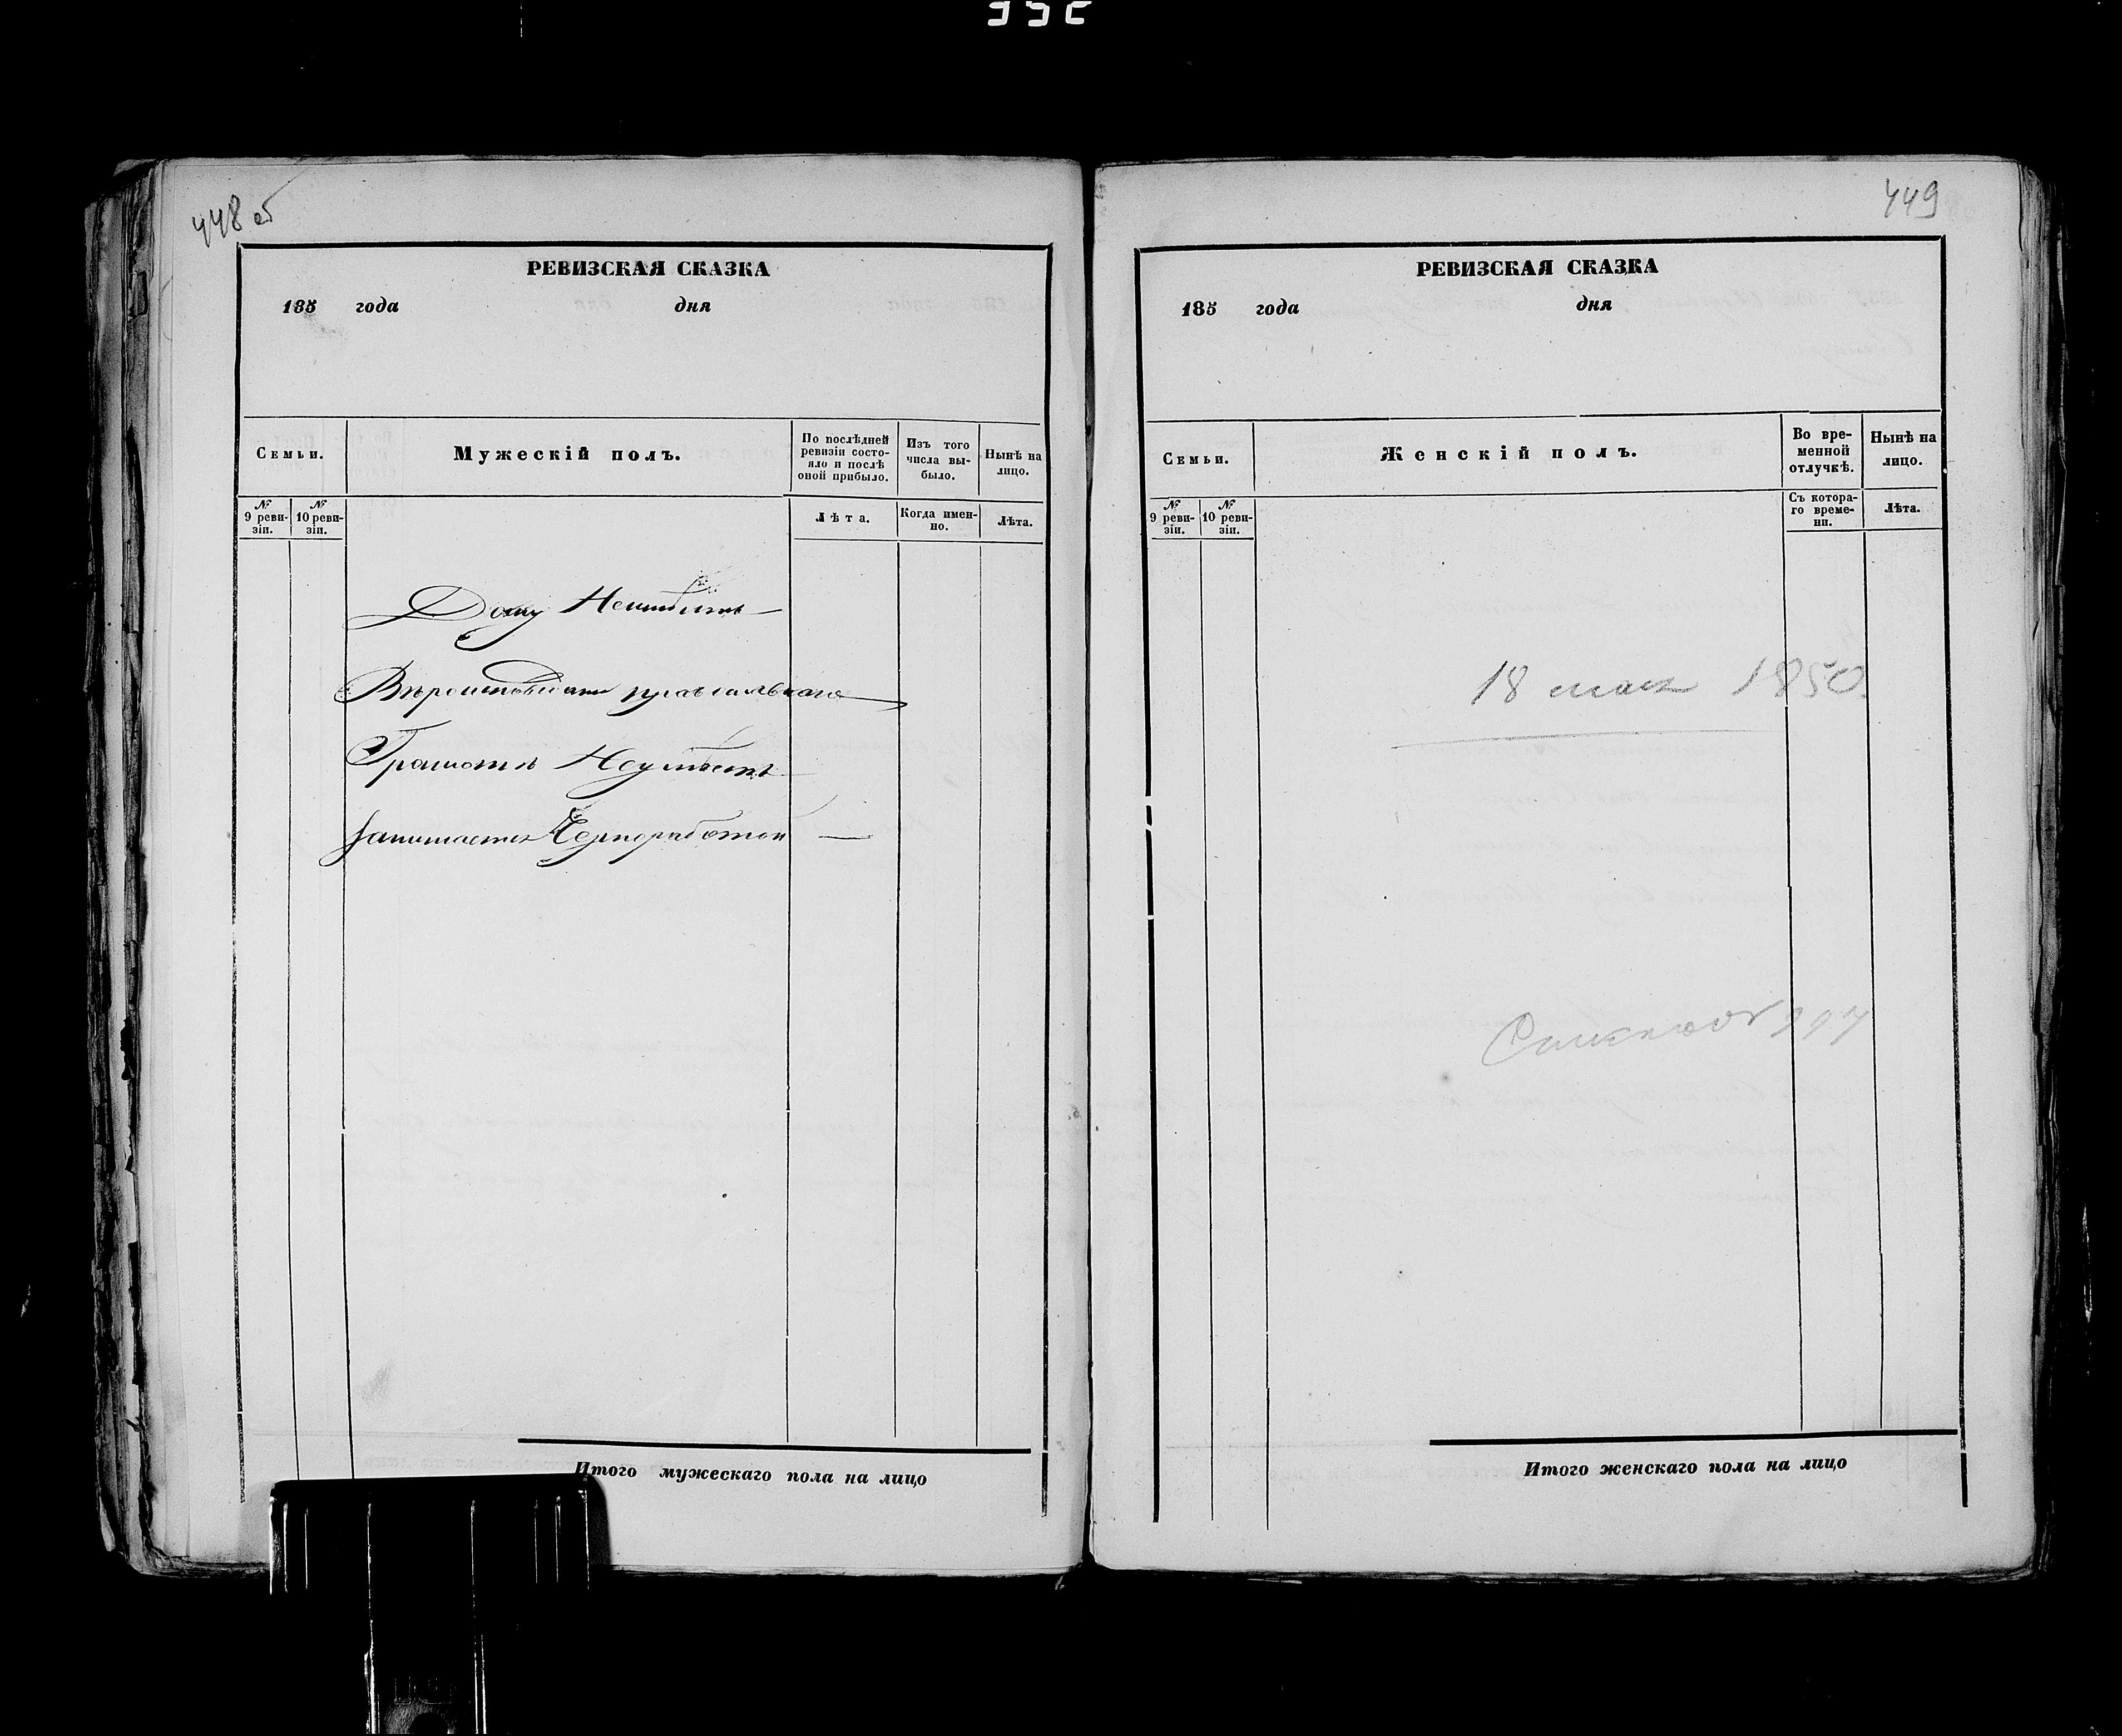 448 об
РЕВИЗСКАЯ СКАЗКА
185 года дня
Семьи.
Мужескій полъ.
По послѣдней ревизіи состояло и послѣ оной прибыло.
Изъ того числа выбыло.
Нынѣ на лицо.
№ 9 ревизіи.
№ 10 ревизіи.
Лѣта.
Когда именно.
Лѣта.
Дому Неимѣетъ
Вѣроисповѣданія православнаго
Грамотѣ Неумѣетъ
Занимается Черноработой
Итого мужескаго пола на лицо
449
РЕВИЗСКАЯ СКАЗКА
185 года дня
Семьи.
Женскій полъ.
Во временной отлучкѣ.
Нынѣ на лицо.
№ 9 ревизіи.
№ 10 ревизіи.
Съ котораго времени.
Лѣта.
18 мая 1850
Итого женскаго пола на лицо